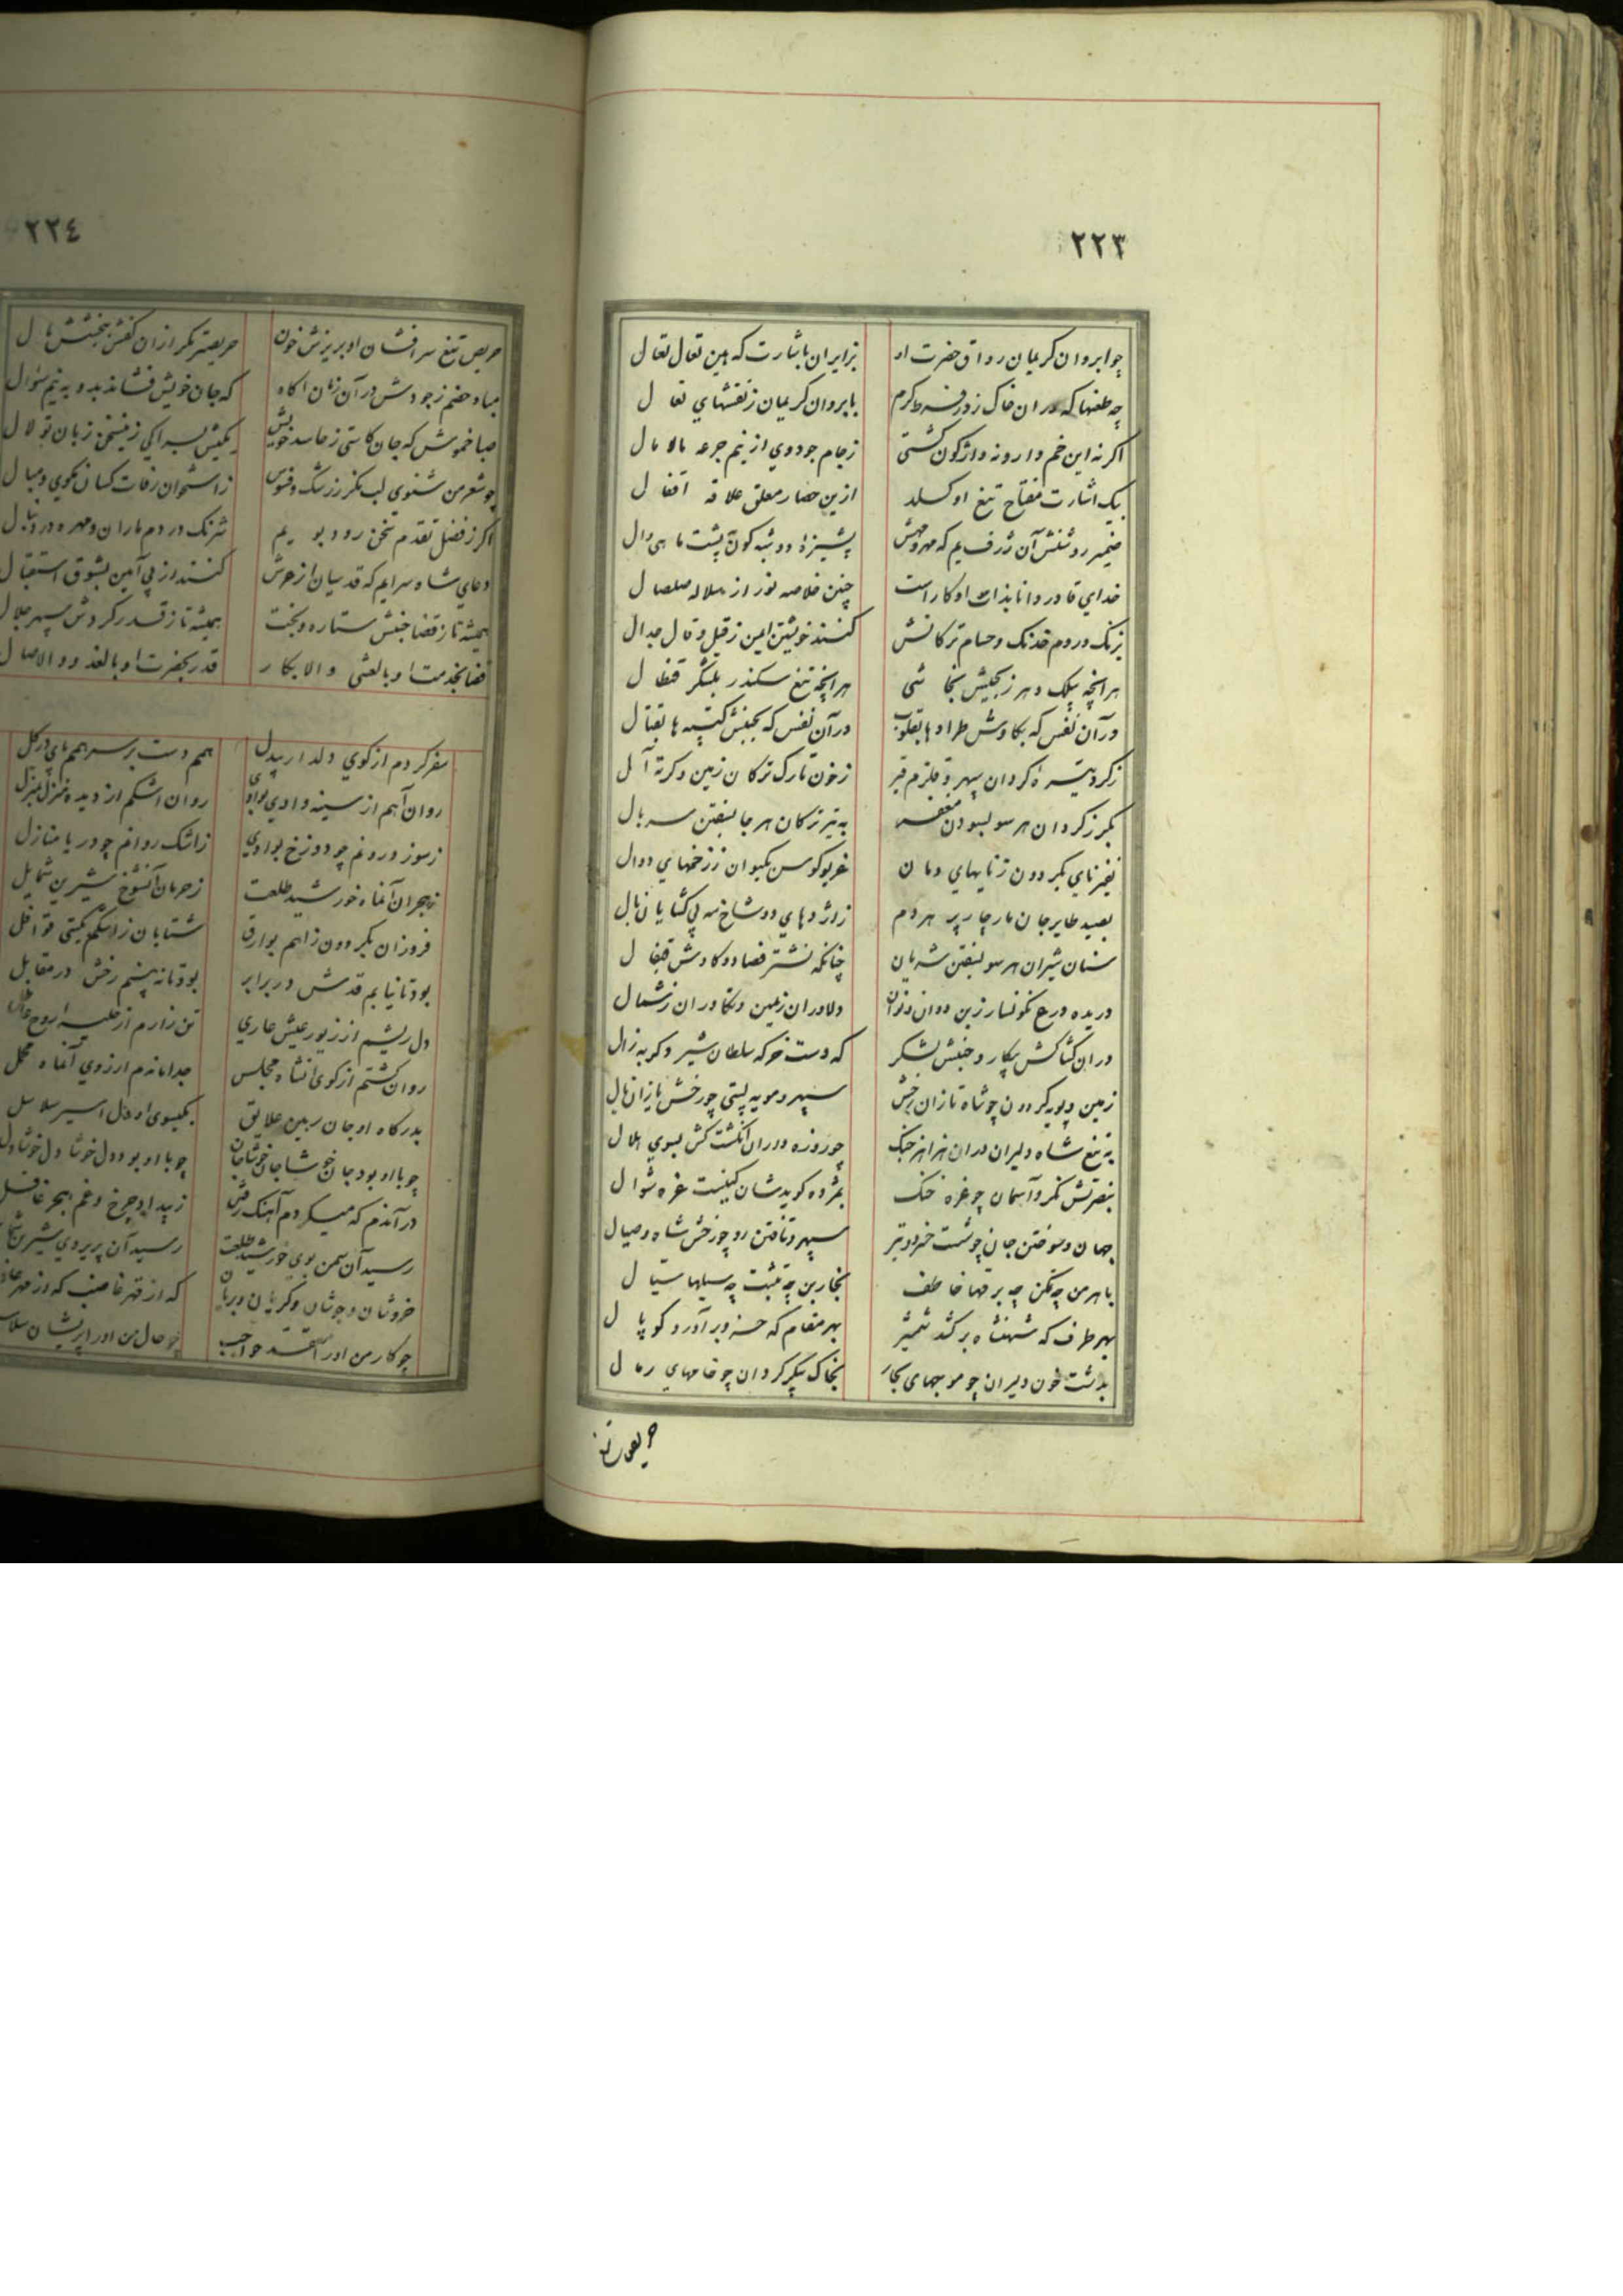 ٢٢٣
چو ابروان کریمان رواق حضرت او بزایران باشارت که هین تعال تعال
چه طعنها که بابروان کریمان ز نقشهای نعال
اکر نه این خم وارونه واژکون کشتی ز جام جود وی از نیم جرعه مالامال
بیک اشارت مفتاح تیغ او کسلد ازین حصار معلق علاقه اقفال
ضمیر روشنش آن ژرف یم که مهر و مهش
خدای قادر و دانا بذات او کار است چنین خلاصه نور از سلاله صلصال
بزنک و روم خدنک و حسام ترکانش کنند خویشتن ایمن ز قیل و قال جدال
هرانچه بیلک هرانچه تیغ سکندر بلشکر قفقال
در آن نفس که در آن نفس که بجنبش کتیبه ها بقتال
ز خون تارک ترکان زمین دکرته آل
بکرز کردان هر سو به تیر ترکان هر جا بسفتن سر بال
نفیر نای بکردون ز نایهای دمان غریو کوس بکیوان ز زخمهای دوال
بصید طایر جان مار چار پر هر دم ز اژدهای دو شاخ
سنان شیران هر سو بسفتن شریان چنانکه نشتر فصاد و کاوش قیفال
دریده درع نکونسار زین دوان و نوان دلاوران ز یمین و تکاوران ز شمال
در آن کشاکش پیکار و جنبش لشکر که دست خوکه سلطان شیر و کربه زال
زمین و پویه کردون چو شاه تازان رخش سپهر و مویه پستی چو رخش یازان یال
به تیغ شاه دلیران در آن هزاهز جنک چو روزه داران انکشت کش بسوی هلال
بنصرتش نکرد آسمان چو غره خنک بمژده کویدشان کینست غره شوال
جهان و سوختن جان چو شست خسرو و تیر سپهر و تافتن رو چو رخش شاه و صیال
باهرمن چه کن چه برقها خاطف بخاربن چه تثبت چه سیلها سیال
بهر طرف که شهنشاه برکشد شمشیر بهر مقام که خسرو برآورد کوپال
بدشت خون دلیران چو موجهای بحار بخاک پیکر کردان چو خامهای رمال
حریص تیغ
٢٢٤
حریص تیغ سرافشان او بریزش خون حریصتر مکر از ان کفش ببخشش مال
مباد خصم ز جودش در آن زمان اکاه که جان خویش فشاند بدو به نیم سؤال
صبا خموش که جان کاستی ز حاسد خویش
چو شعر من شنوی لب مکز ز رشک و فسوس
اکر ز فضل تقدم سخن رود بو یم شرنک در دم ماران و مهره در دنبال
دعای شاه سرایم که قدسیان از عرش کنند از پی آمین بشوق استقبال
همیشه تا ز قضا جنبش ستاره و بخت همیشه تا ز قدر کردش سپهر جلال
قضا بخدمت او بالعشی والابکار قدر بحضرت او بالغدو والاصال
سفر کردم از کوی دلدار بیدل همم دست بر سر همم پای در کل
روان آهم از سینه وادی بوادی روان اشکم از دیده منزل بمنزل
ز سوز درونم چو دوزخ بوادی ز اشک روانم چو دریا منازل
ز هجران آنماه خورشید طلعت ز حرمان آنشوخ شیرین شمایل
فروزان بکردون ز اهم بوارق شتابان ز اشکم بکیتی قوافل
بود تا نیابم قدش در برابر بود تا نه بینم رخش در مقابل
دل ریشم از زیور عیش عاری تن زارم از حلیه روح عاطل
روان کشتم از کوی انشاه مجلس جدا ماندم از روی آنماه محفل
بدرکاه او جان رهین علایق بکیسوی او دل اسیر سلاسل
چو با او بود جان خوشا جان خوشا جان چو با او بود دل خوشا دل خوشا دل
در آندم که میکردم آهنک رفتن ز بیداد چرخ و غم هجر غافل
رسید آن سمن بوی خورشید طلعت رسید آن پریروی شیرین شمایل
خروشان و جوشان و کریان و بریان
چو کار من او را چو حال من او را پریشان سلاسل